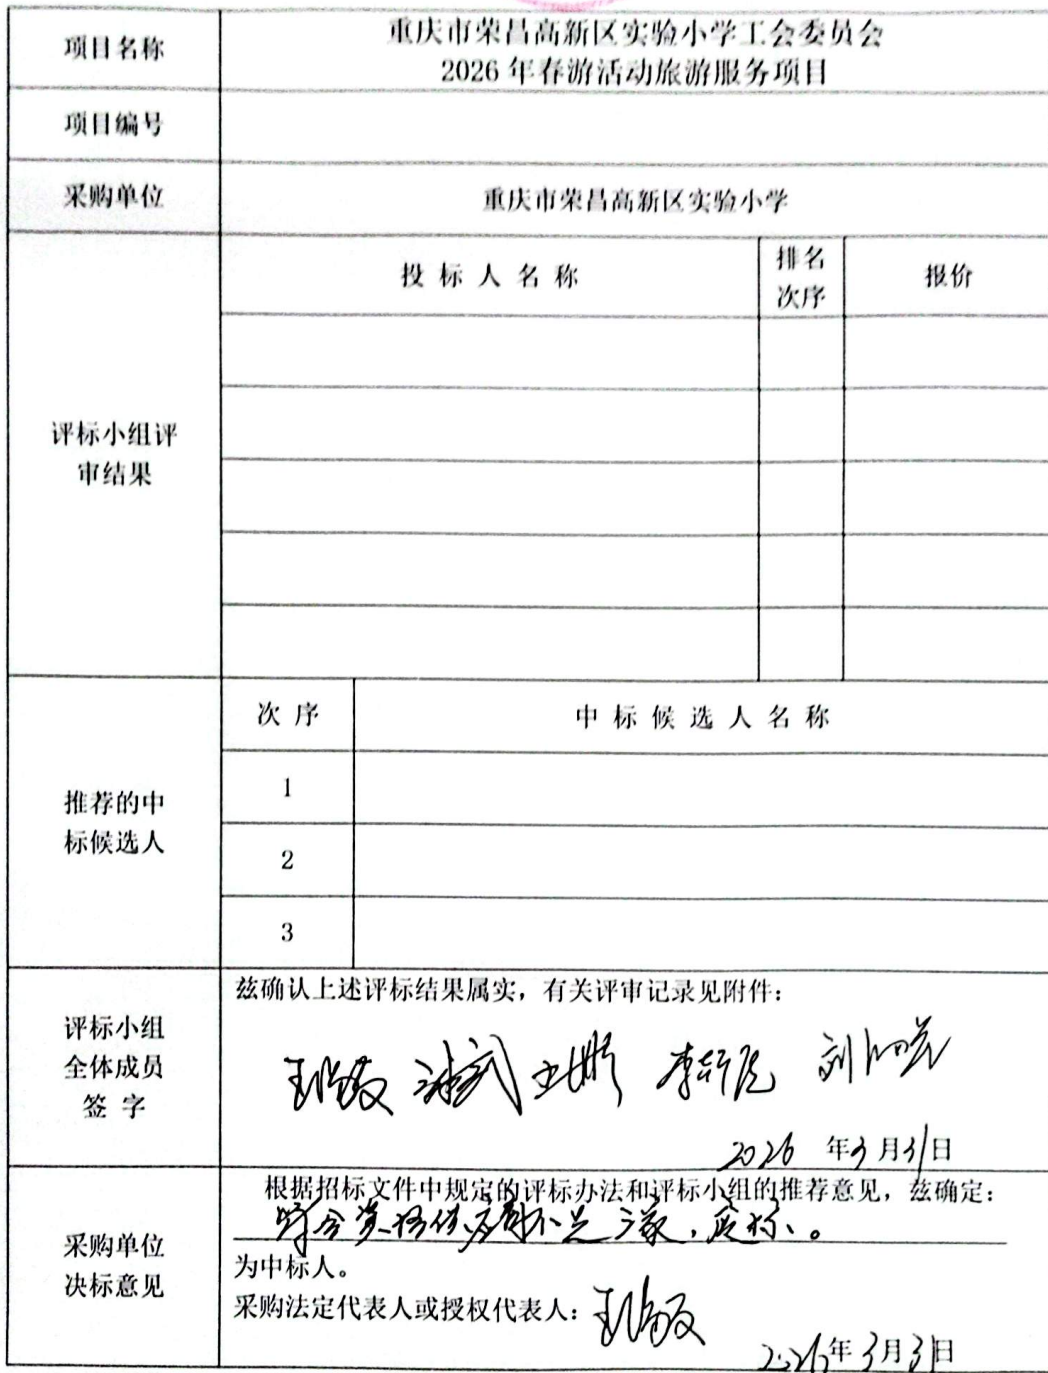 项目名称
重庆市荣昌高新区实验小学工会委员会
2026年春游活动旅游服务项目
项目编号
采购单位
重庆市荣昌高新区实验小学
评标小组评
审结果
投标人名称
排名
次序
报价
推荐的中
标候选人
次序
中标候选人名称
1
2
3
评标小组
全体成员
签字
兹确认上述评标结果属实，有关评审记录见附件：
2026 年3月31日
采购单位
决标意见
根据招标文件中规定的评标办法和评标小组的推荐意见，兹确定：
符合资格供应商不足三家，废标。
为中标人。
采购法定代表人或授权代表人：
2026年3月31日